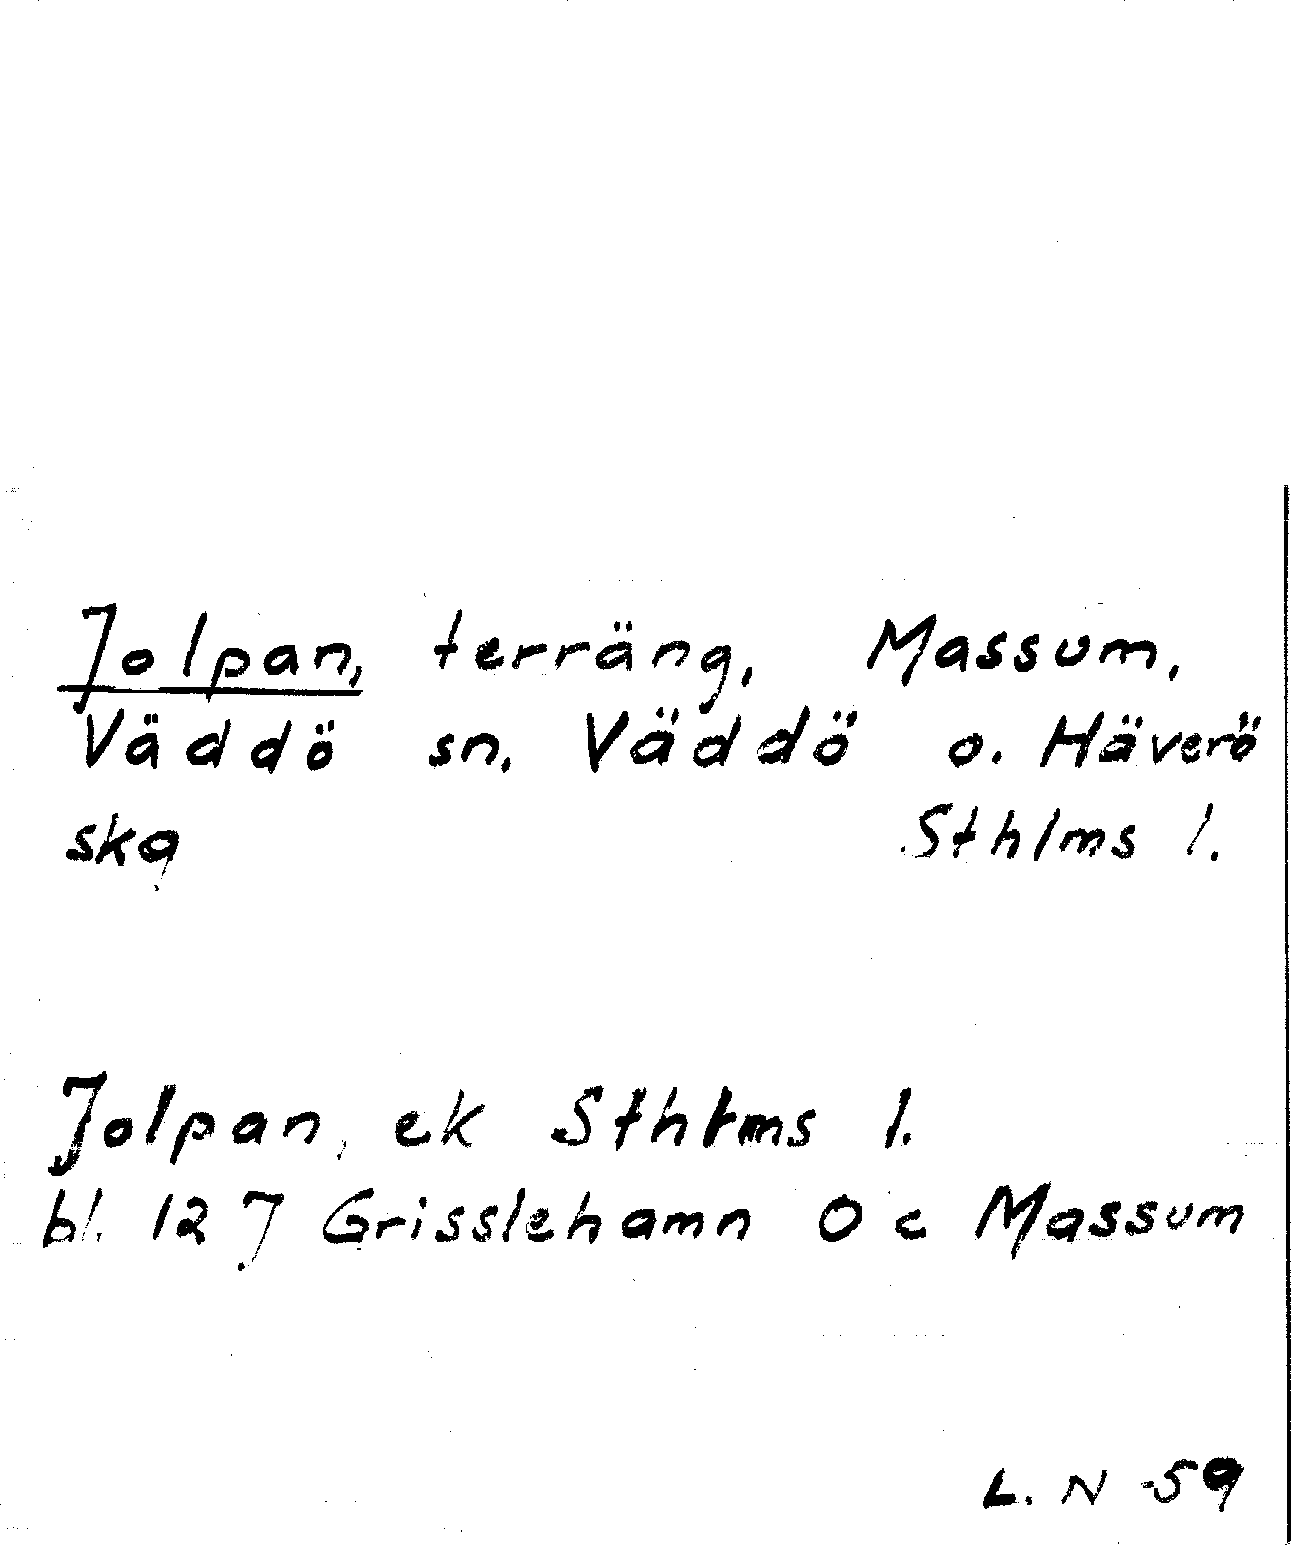 Jolpan, terräng, Massum,
Väddö sn. Väddö o. Häverö
skg Sthlms l.
Jolpan, ek Sthlms l.
bl. 127 Grisslehamn O c Massum
L. N -59